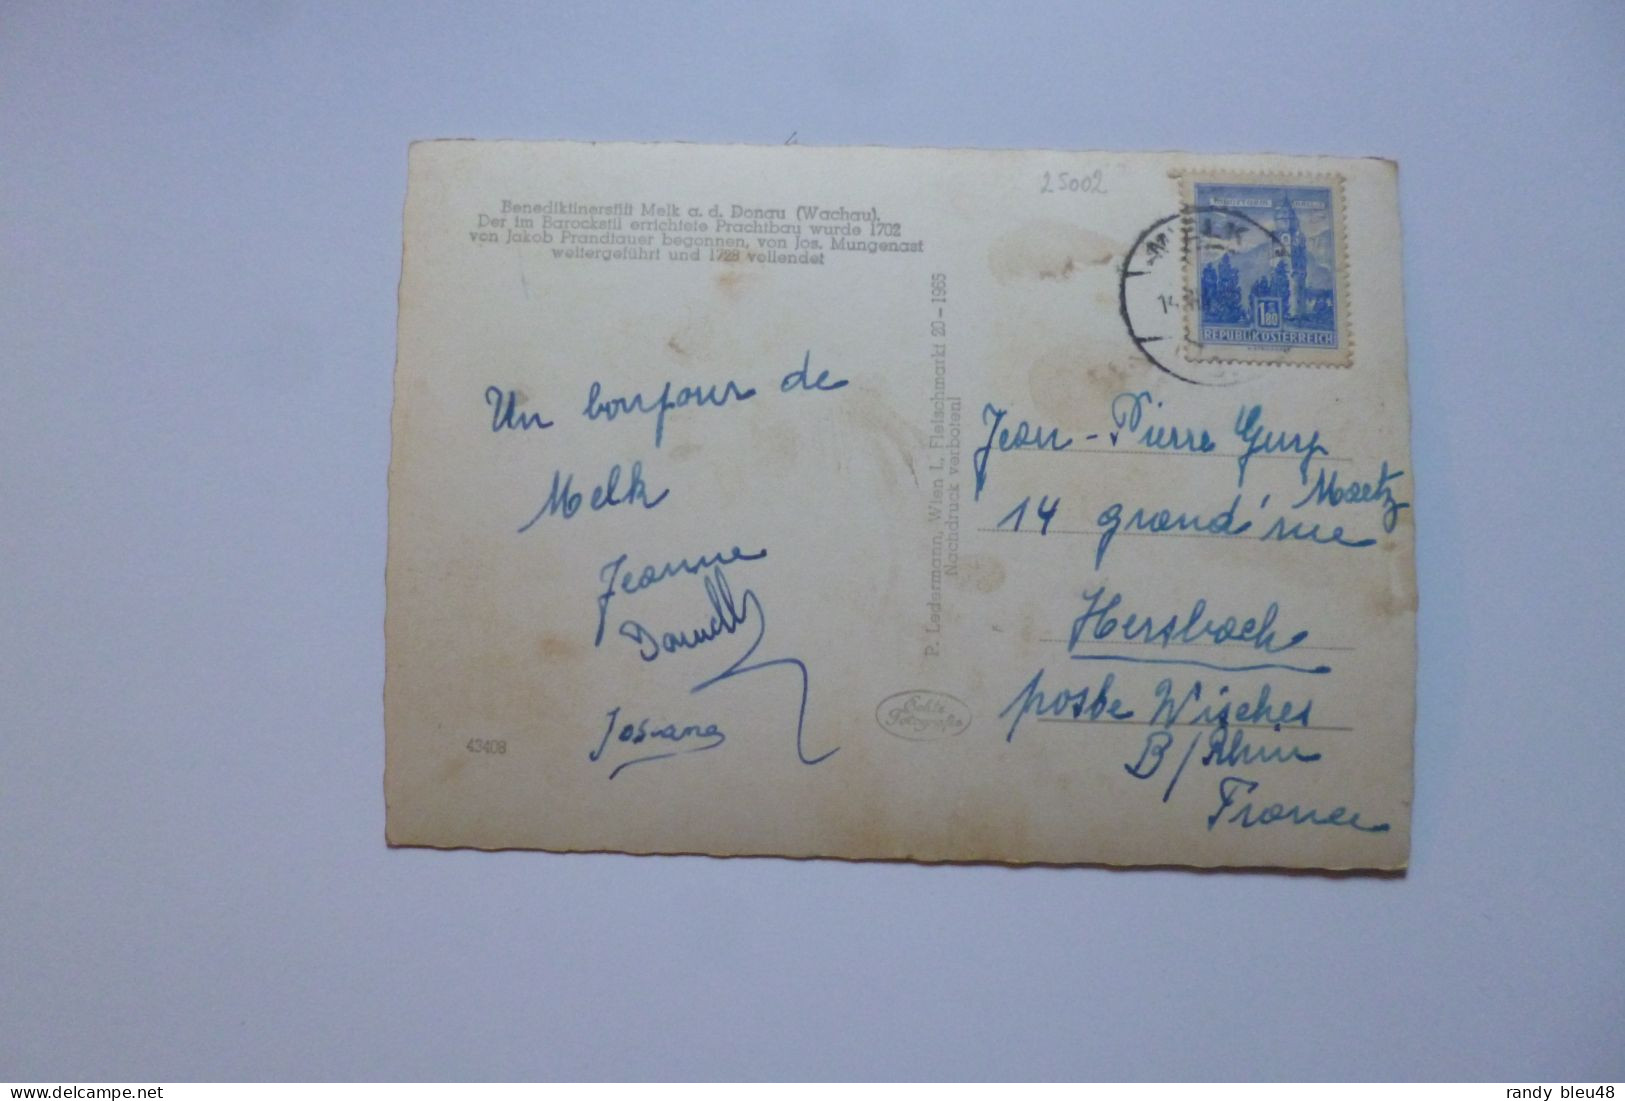 Benediktinerstift Melk a. d. Donau (Wachau).
Der im Barockstil errichtete Prachtbau wurde 1702
von Jakob Prandtauer begonnen, von Jos. Mungenast
weitergeführt und 1728 vollendet
25002
MELK
REPUBLIK ÖSTERREICH
1.80
Un bonjour de
Melk
Jeanne
Josiane
43408
P. Ledermann, Wien I., Fleischmarkt 20 – 1965
Nachdruck verboten!
Echte
Fotografie
Jean-Pierre
14 grand'rue
Hersbach
poste Wisches
B/Rhin
France
delcampe.net
randy_bleu48